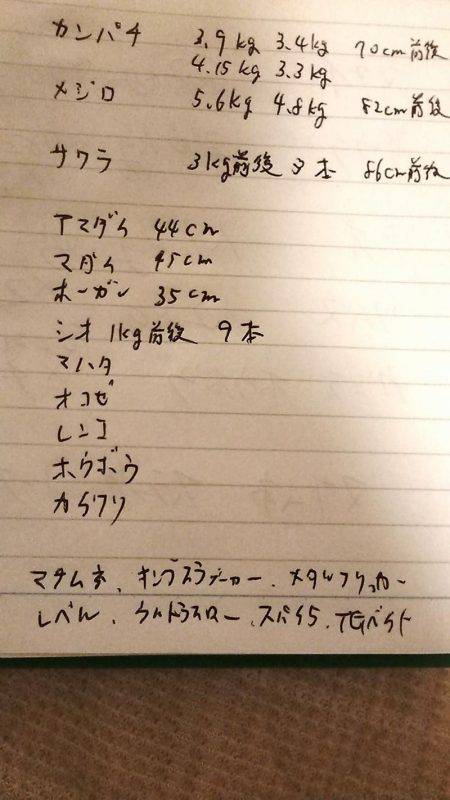 カンパチ 3.9kg 3.4kg 70cm前後
4.15kg 3.3kg
メジロ 5.6kg 4.8kg 82cm前後
サワラ 3kg前後 8本 86cm前後
アマダイ 44cm
マダイ 45cm
ホーガレ 35cm
シオ 1kg前後 9本
マハタ
オコゼ
レンコ
ホウボウ
カイワリ
キングスラッガー、メタルフリッカー
レベル、ウルトラスロー、スパイ5、TGベイト